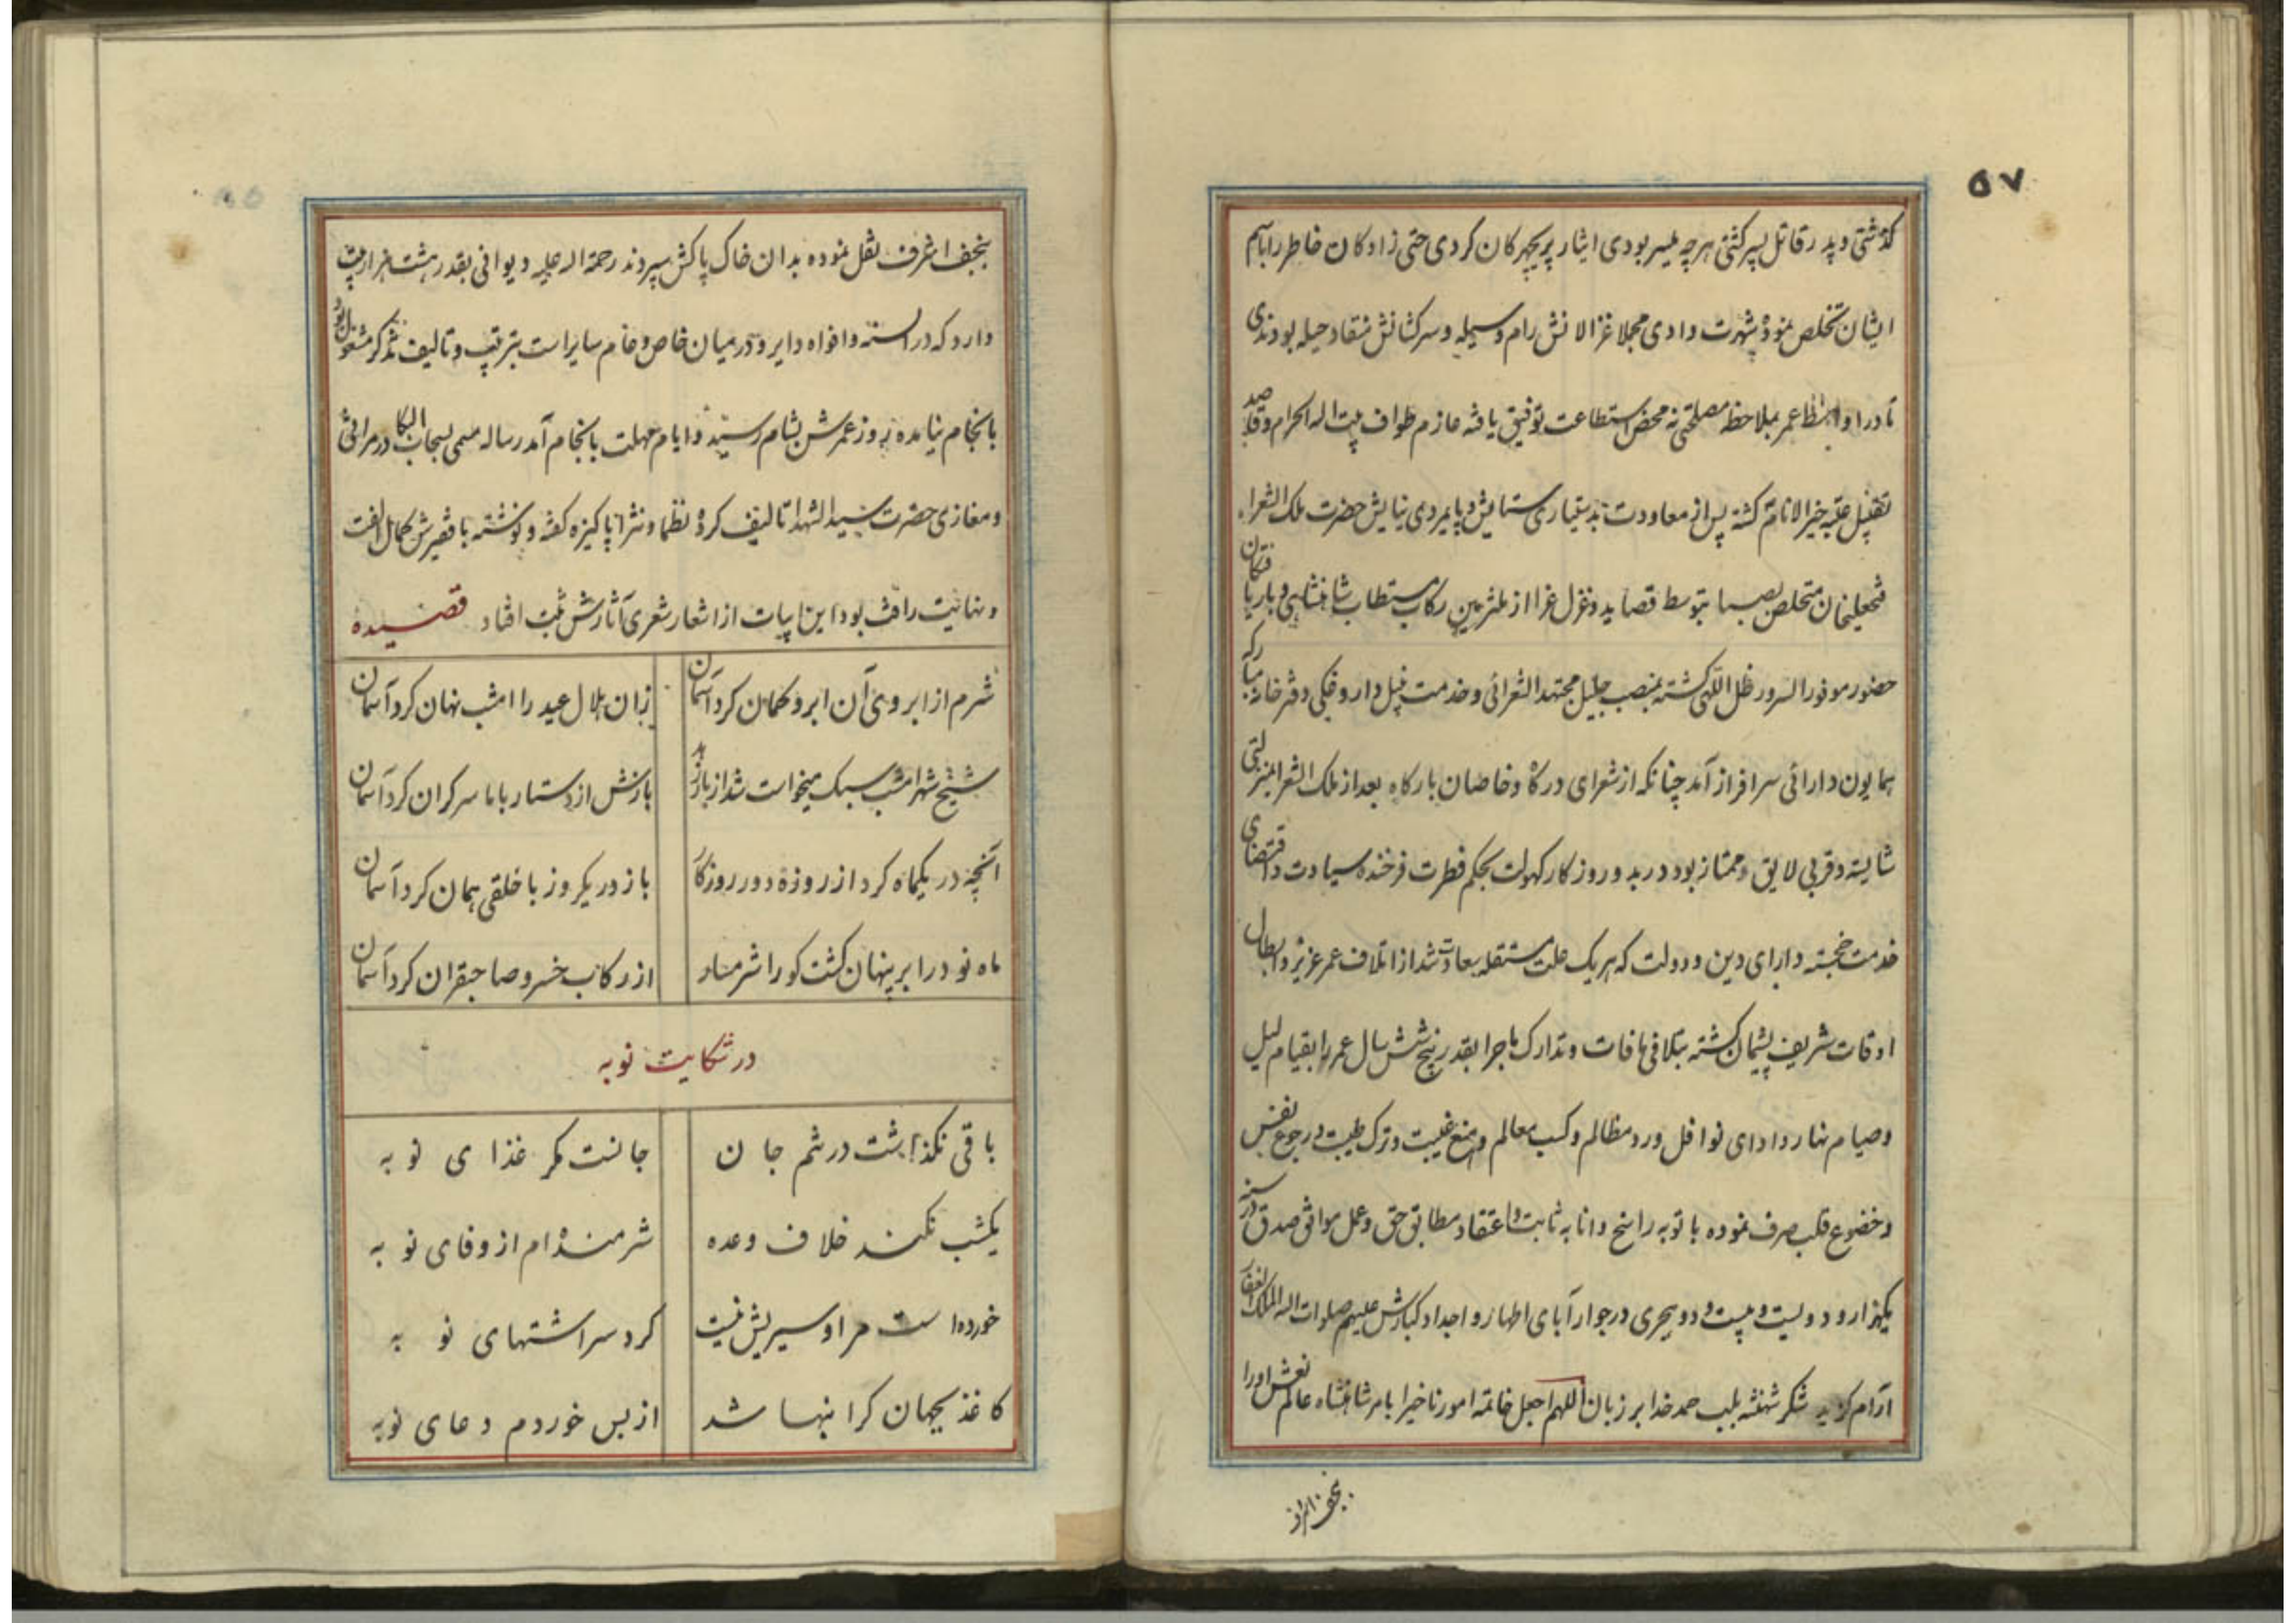 ۵۷
گذشتی و پدر قاتل پسر کشتی هرچه میسر بودی ایثار پریچهرکان کردی حتی زادکان خاطر را باسم
ایشان تخلص نموده شهرت دادی مجملا غزالانش رام وسیله و سرکشانش منقاد حیله بودندی
تا در اواسط عمر بملاحظه مصلحتی نه محض استطاعت توفیق یافته عازم طواف بیت اله الحرام و قاصد
تقبیل عتبه خیر الانام کشته پس از معاودت بدستیاری ستایش و پایمردی نیایش حضرت ملک الشعراء
فتحعلیخان متخلص بصبا بتوسط قصاید و غزل غرا از ملتزمین رکاب مستطاب شاهنشاهی و باریافتکان
حضور موفور السرور ظل اللهی کشته بمنصب جلیل مجتهد الشعرائی و خدمت نبیل داروغکی دفترخانه مبارکه
همایون دارائی سرافراز آمد چنانکه از شعرای درکاه و خاصان بارکاه بعد از ملک الشعرا بمنزلتی
شایسته و قربی لایق و ممتاز بود در بدو روزکار کهولت بحکم فطرت فرخنده سیادت و اقتضای
خدمت خجسته دارای دین و دولت که هریک علت مستقله سعادت شد از اتلاف عمر عزیز و ابطال
اوقات شریف پشیمان کشته بتلافی مافات و تدارک ماجرا بقدر پنج شش سال عمر را بقیام لیل
و صیام نهار و ادای نوافل و رد مظالم و کسب معالم و منع غیبت و ترک طیبت و رجوع نفس
و خضوع قلب صرف نموده با توبه راسخ و انابه ثابت و اعتقاد مطابق حق و عمل موافق صدق در سنه
یکهزار و دویست و بیست و دو هجری در جوار آبای اطهار و اجداد کبارش علیهم صلوات اله الملک الغفار
آرام کزید شکر شهنشه بلب حمد خدا بر زبان اللهم اجعل خاتمة امورنا خیرا بامر شاهنشاه عالم نعش او را
بنجف اشرف
بنجف اشرف نقل نموده بدان خاک پاکش سپردند رحمة اله علیه دیوانی بقدر هشت هزار بیت
دارد که در السنه و افواه دایر و در میان خاص و عام سایر است بترتیب و تالیف تذکره مشغول بود
بانجام نیامده روز عمرش بشام رسید و ایام مهلت بانجام آمد رساله مسمی بسحاب البکا در مراثی
و مغازی حضرت سید الشهدا تالیف کرده نظما و نثرا پاکیزه کفته و نوشته با فقیرش کمال الفت
و نهایت رافت بود این ابیات از اشعار شعری آثارش ثبت افتاد قصیده
شرم از ابروی آن ابرو کمان کرد آسمان زان هلال عید را امشب نهان کرد آسمان
شیخ شهر امشب سبک میخواست شد از بار زهد بازش از دستار با ما سرکران کرد آسمان
آنچه در یکماه کرد از روزه دور روزکار باز در یکروز با خلقی همان کرد آسمان
ماه نو در ابر پنهان کشت کو را شرمسار از رکاب خسرو صاحبقران کرد آسمان
در شکایت نوبه
باقی نکذاشت در تنم جان جانست مکر غذای نوبه
یکشب نکند خلاف وعده شرمنده ام از وفای نوبه
خورده است مرا و سیریش نیست کرد سر اشتهای نوبه
کاغذ بجهان کرانبها شد از بس خوردم دعای نوبه